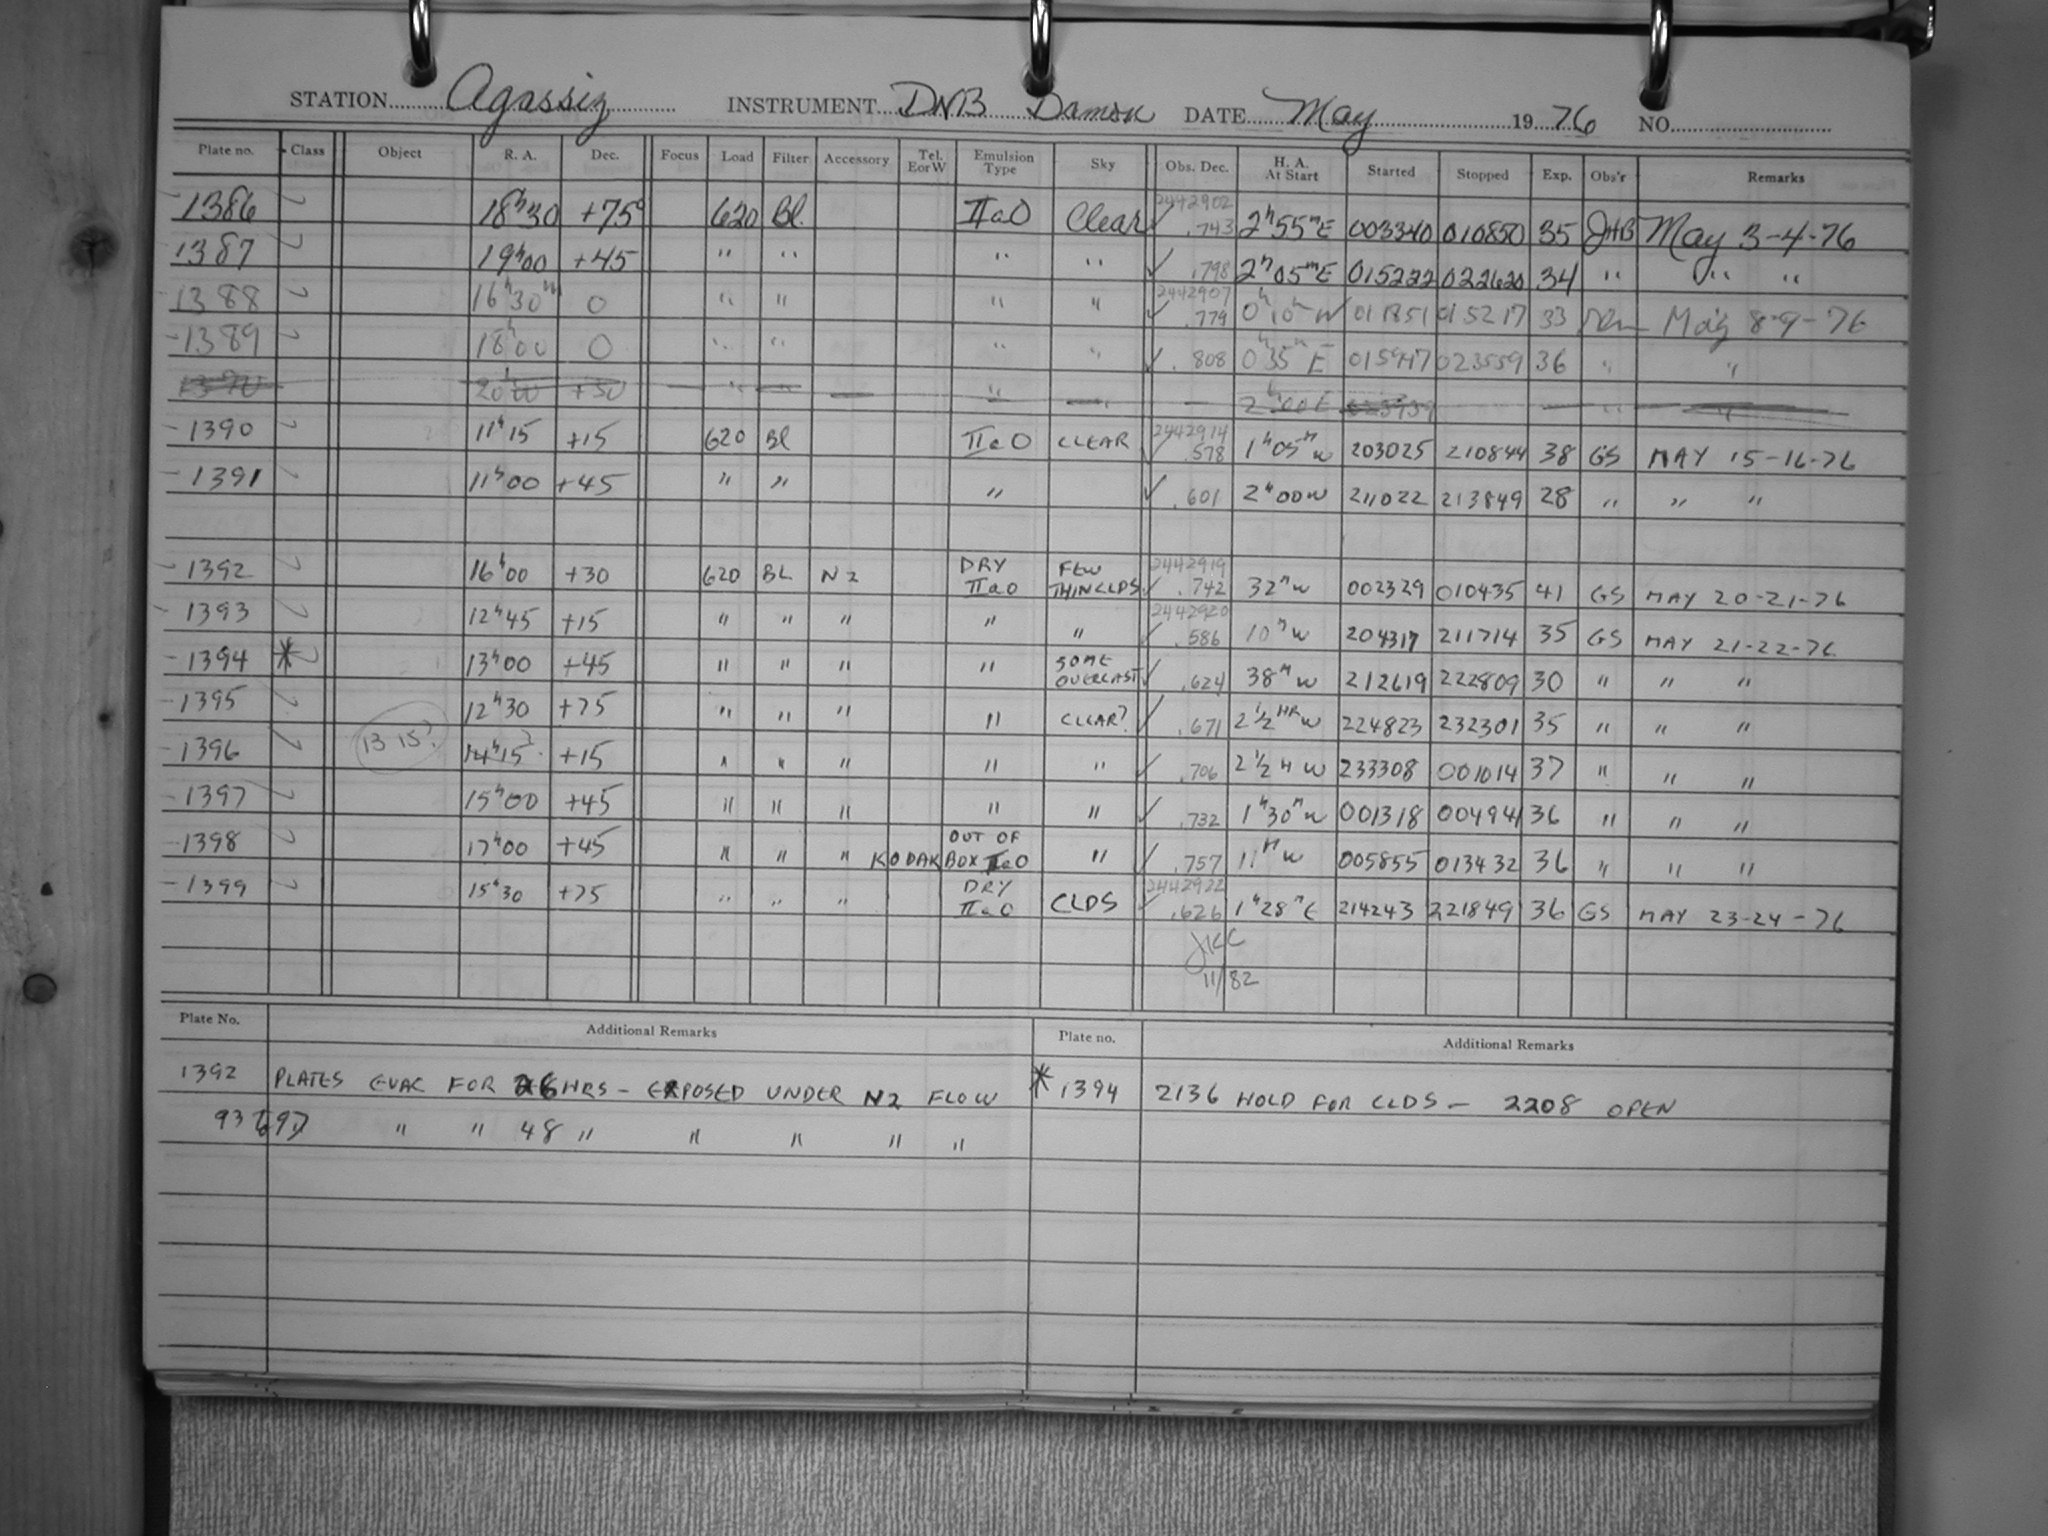 STATION Agassiz INSTRUMENT DNB Damon DATE May 1976 NO.
Plate no. Class Object R. A. Dec. Focus Load Filter Accessory Tel. E or W Emulsion Type Sky Obs. Dec. H. A. At Start Started Stopped Exp. Obs'r Remarks
1386 18h30 +75° 620 Bl. IIaO Clear 2442902 .743 2h55mE 003340 010850 35 JHB May 3-4-76
1387 19h00 +45 " " " " .798 2h05mE 015222 022620 34 " " "
1388 16h30m 0 " " " " 2442907 .779 0h10mW 011851 015217 33 May 8-9-76
1389 18h00 0 " " " " .808 0h35mE 015947 023559 36 " "
20h00 +30 " " 2h00E "
1390 11h15 +15 620 Bl IIaO CLEAR 2442914 .578 1h05mW 203025 210844 38 GS MAY 15-16-76
1391 11h00 +45 " " " .601 2h00W 211022 213849 28 " " "
1392 16h00 +30 620 BL N2 DRY IIaO FEW THIN CLDS 2442919 .742 32mW 002329 010435 41 GS MAY 20-21-76
1393 12h45 +15 " " " " " 2442920 .586 10mW 204317 211714 35 GS MAY 21-22-76
1394 * 13h00 +45 " " " " SOME OVERCAST .624 38mW 212619 222809 30 " " "
1395 12h30 +75 " " " " CLEAR? .671 2 1/2 HR W 224823 232301 35 " " "
1396 13 15? 14h15? +15 " " " " " .706 2 1/2 H W 233308 001014 37 " " "
1397 15h00 +45 " " " " " .732 1h30mW 001318 004941 36 " " "
1398 17h00 +45 " " " KODAK OUT OF BOX IIaO " .757 11mW 005855 013432 36 " " "
1399 15h30 +75 " " " DRY IIaO CLDS 2442922 .626 1h28mE 214243 221849 36 GS MAY 23-24-76
JKC
11/82
Plate No. Additional Remarks Plate no. Additional Remarks
1392 PLATES EVAC FOR 26HRS - EXPOSED UNDER N2 FLOW * 1394 2136 HOLD FOR CLDS - 2208 OPEN
93 97 " " 48 " " " " "